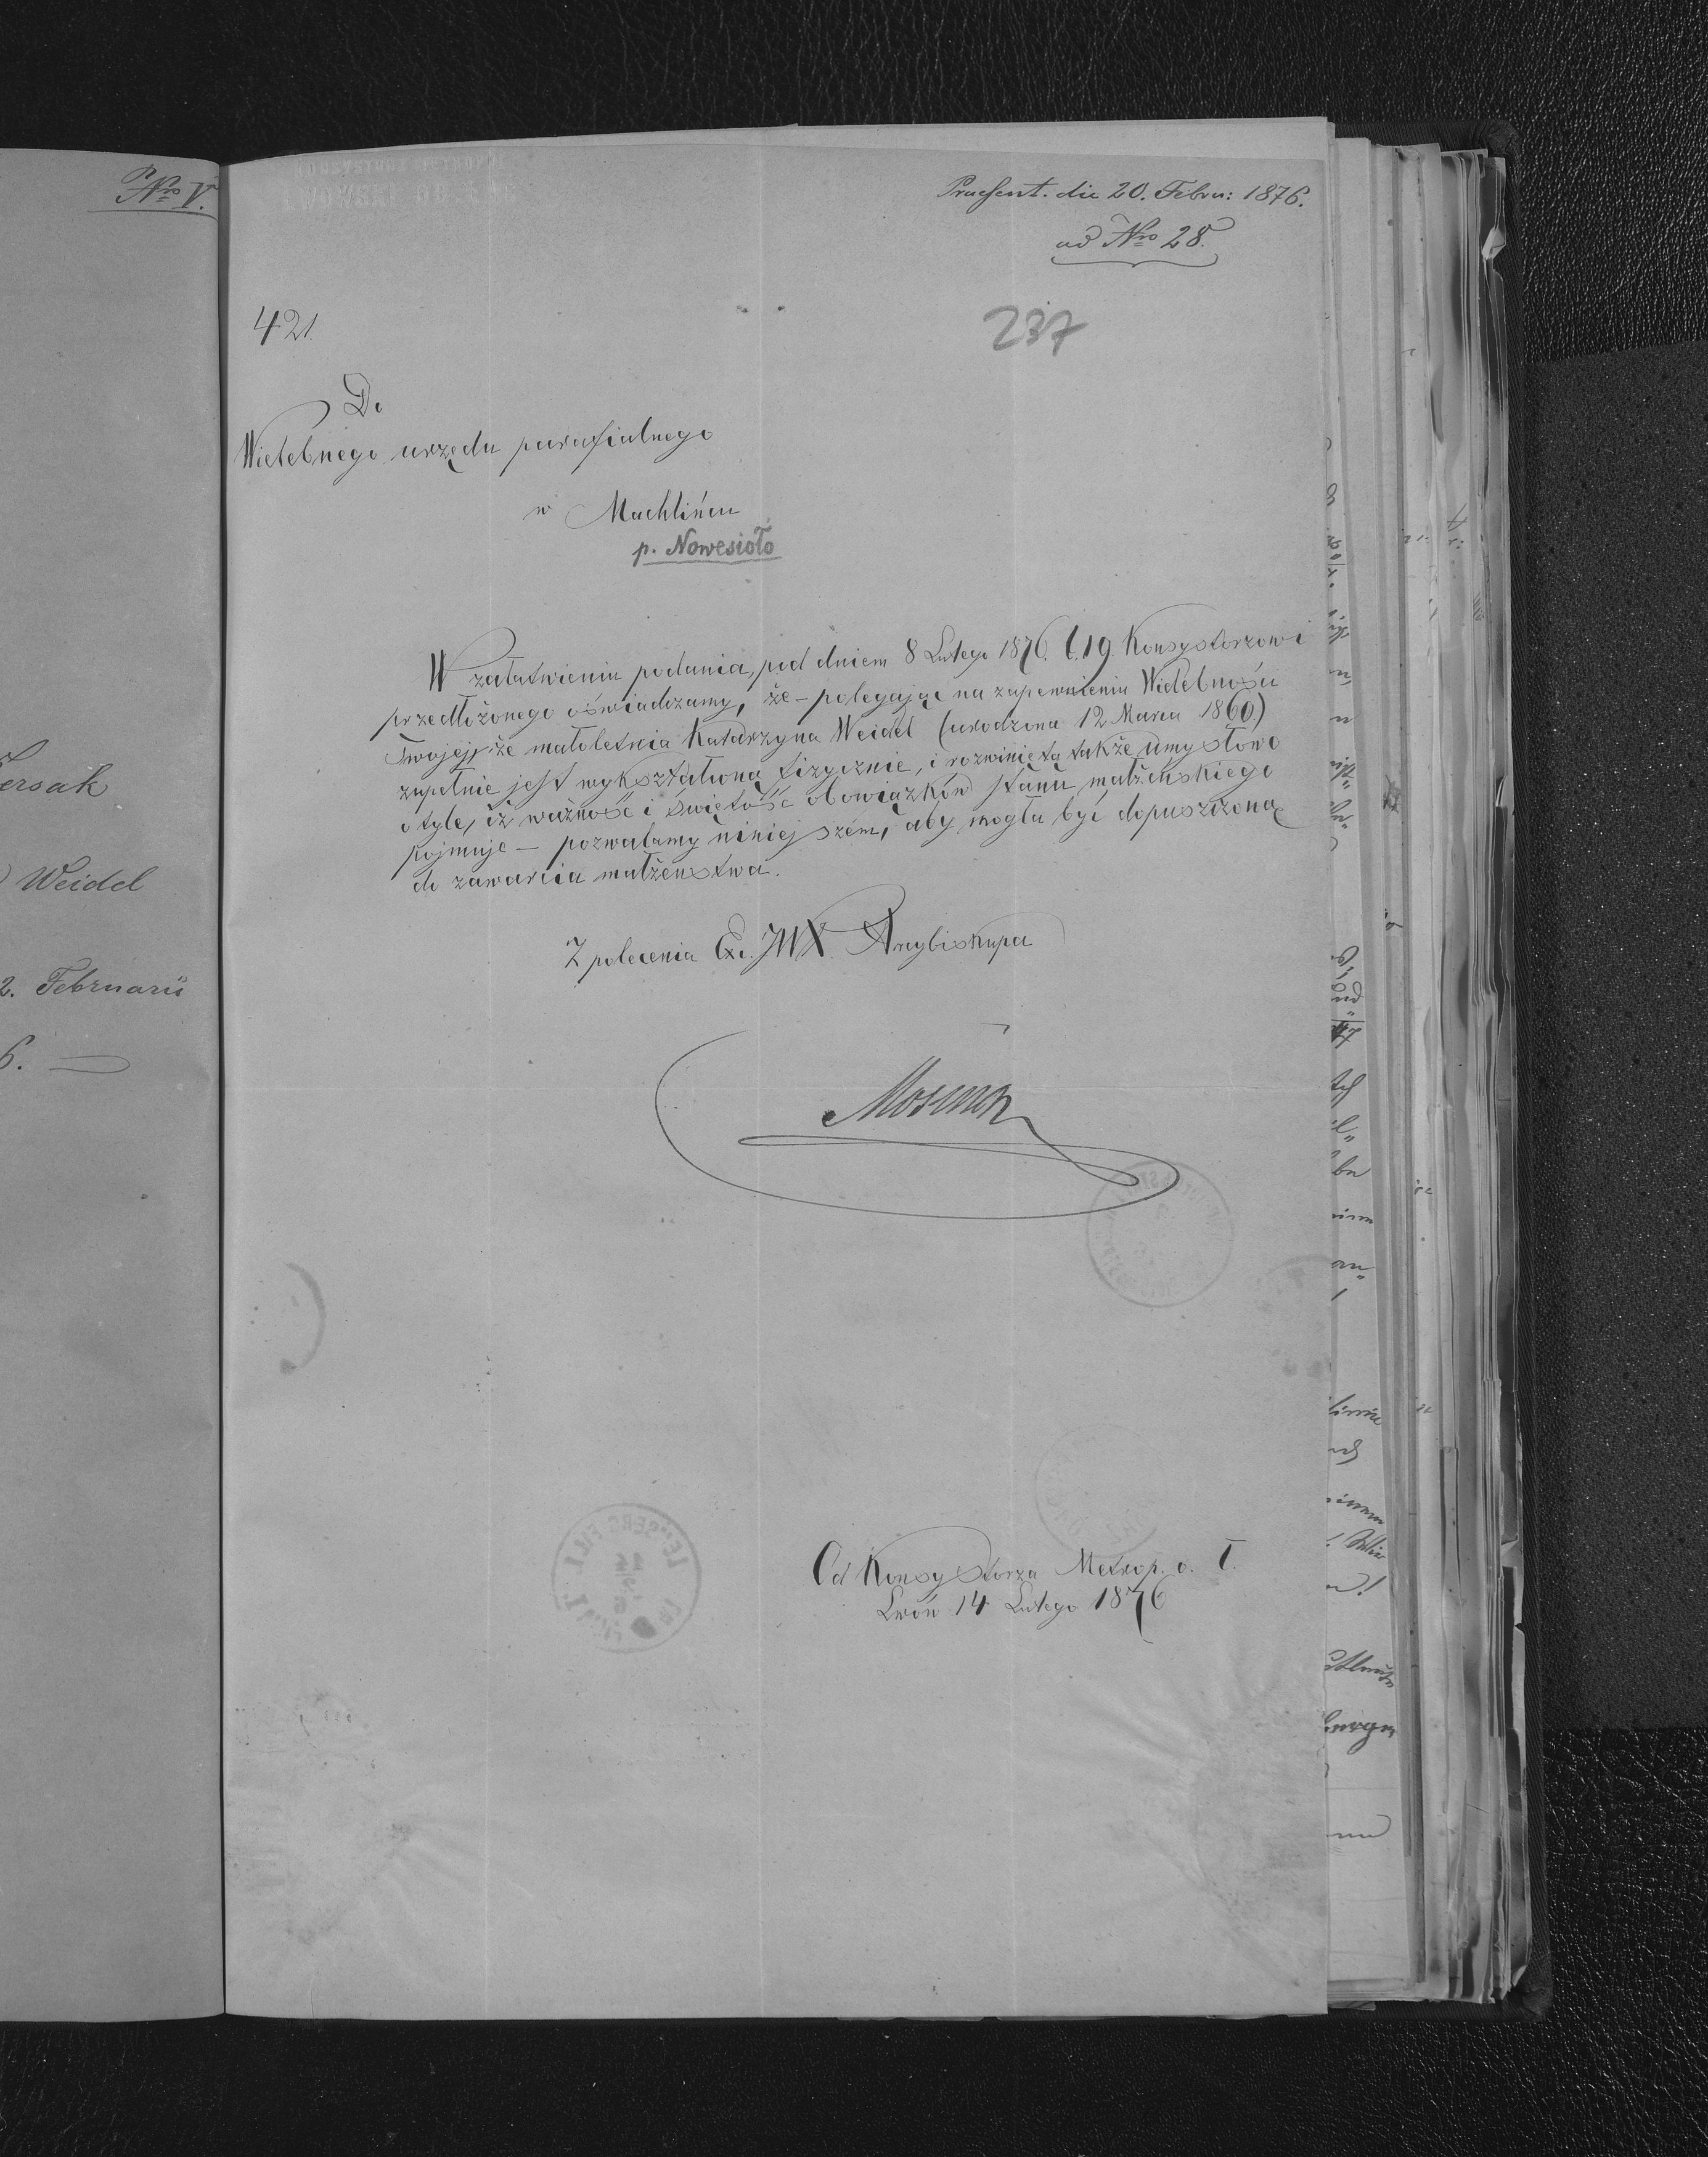 Nro V.
ersak
Weidel
2. Februarii
6.
Praesent. die 20. Febru: 1876.
ad Nro 28.
421.
237
Do
Wielebnego urzędu parafialnego
w Machlińcu
p. Nowesioło
W załatwieniu podania, pod dniem 8 Lutego 1876. l. 19. Konsystorzowi
przedłożonego oświadczamy, że - polegając na zapewnieniu Wielebności
Twojej, że małoletnia Katarzyna Weidel (urodzona 12 Marca 1860)
zupełnie jest wykształconą fizycznie, i rozwiniętą także umysłowo
o tyle, iż ważność i świętość obowiązków stanu małżeńskiego
pojmuje — pozwalamy niniejszém, aby mogła być dopuszczoną
do zawarcia małżeństwa.
Z polecenia Exc. JWX. Arcybiskupa
Od Konsystorza Metrop. o. ł.
Lwów 14 Lutego 1876